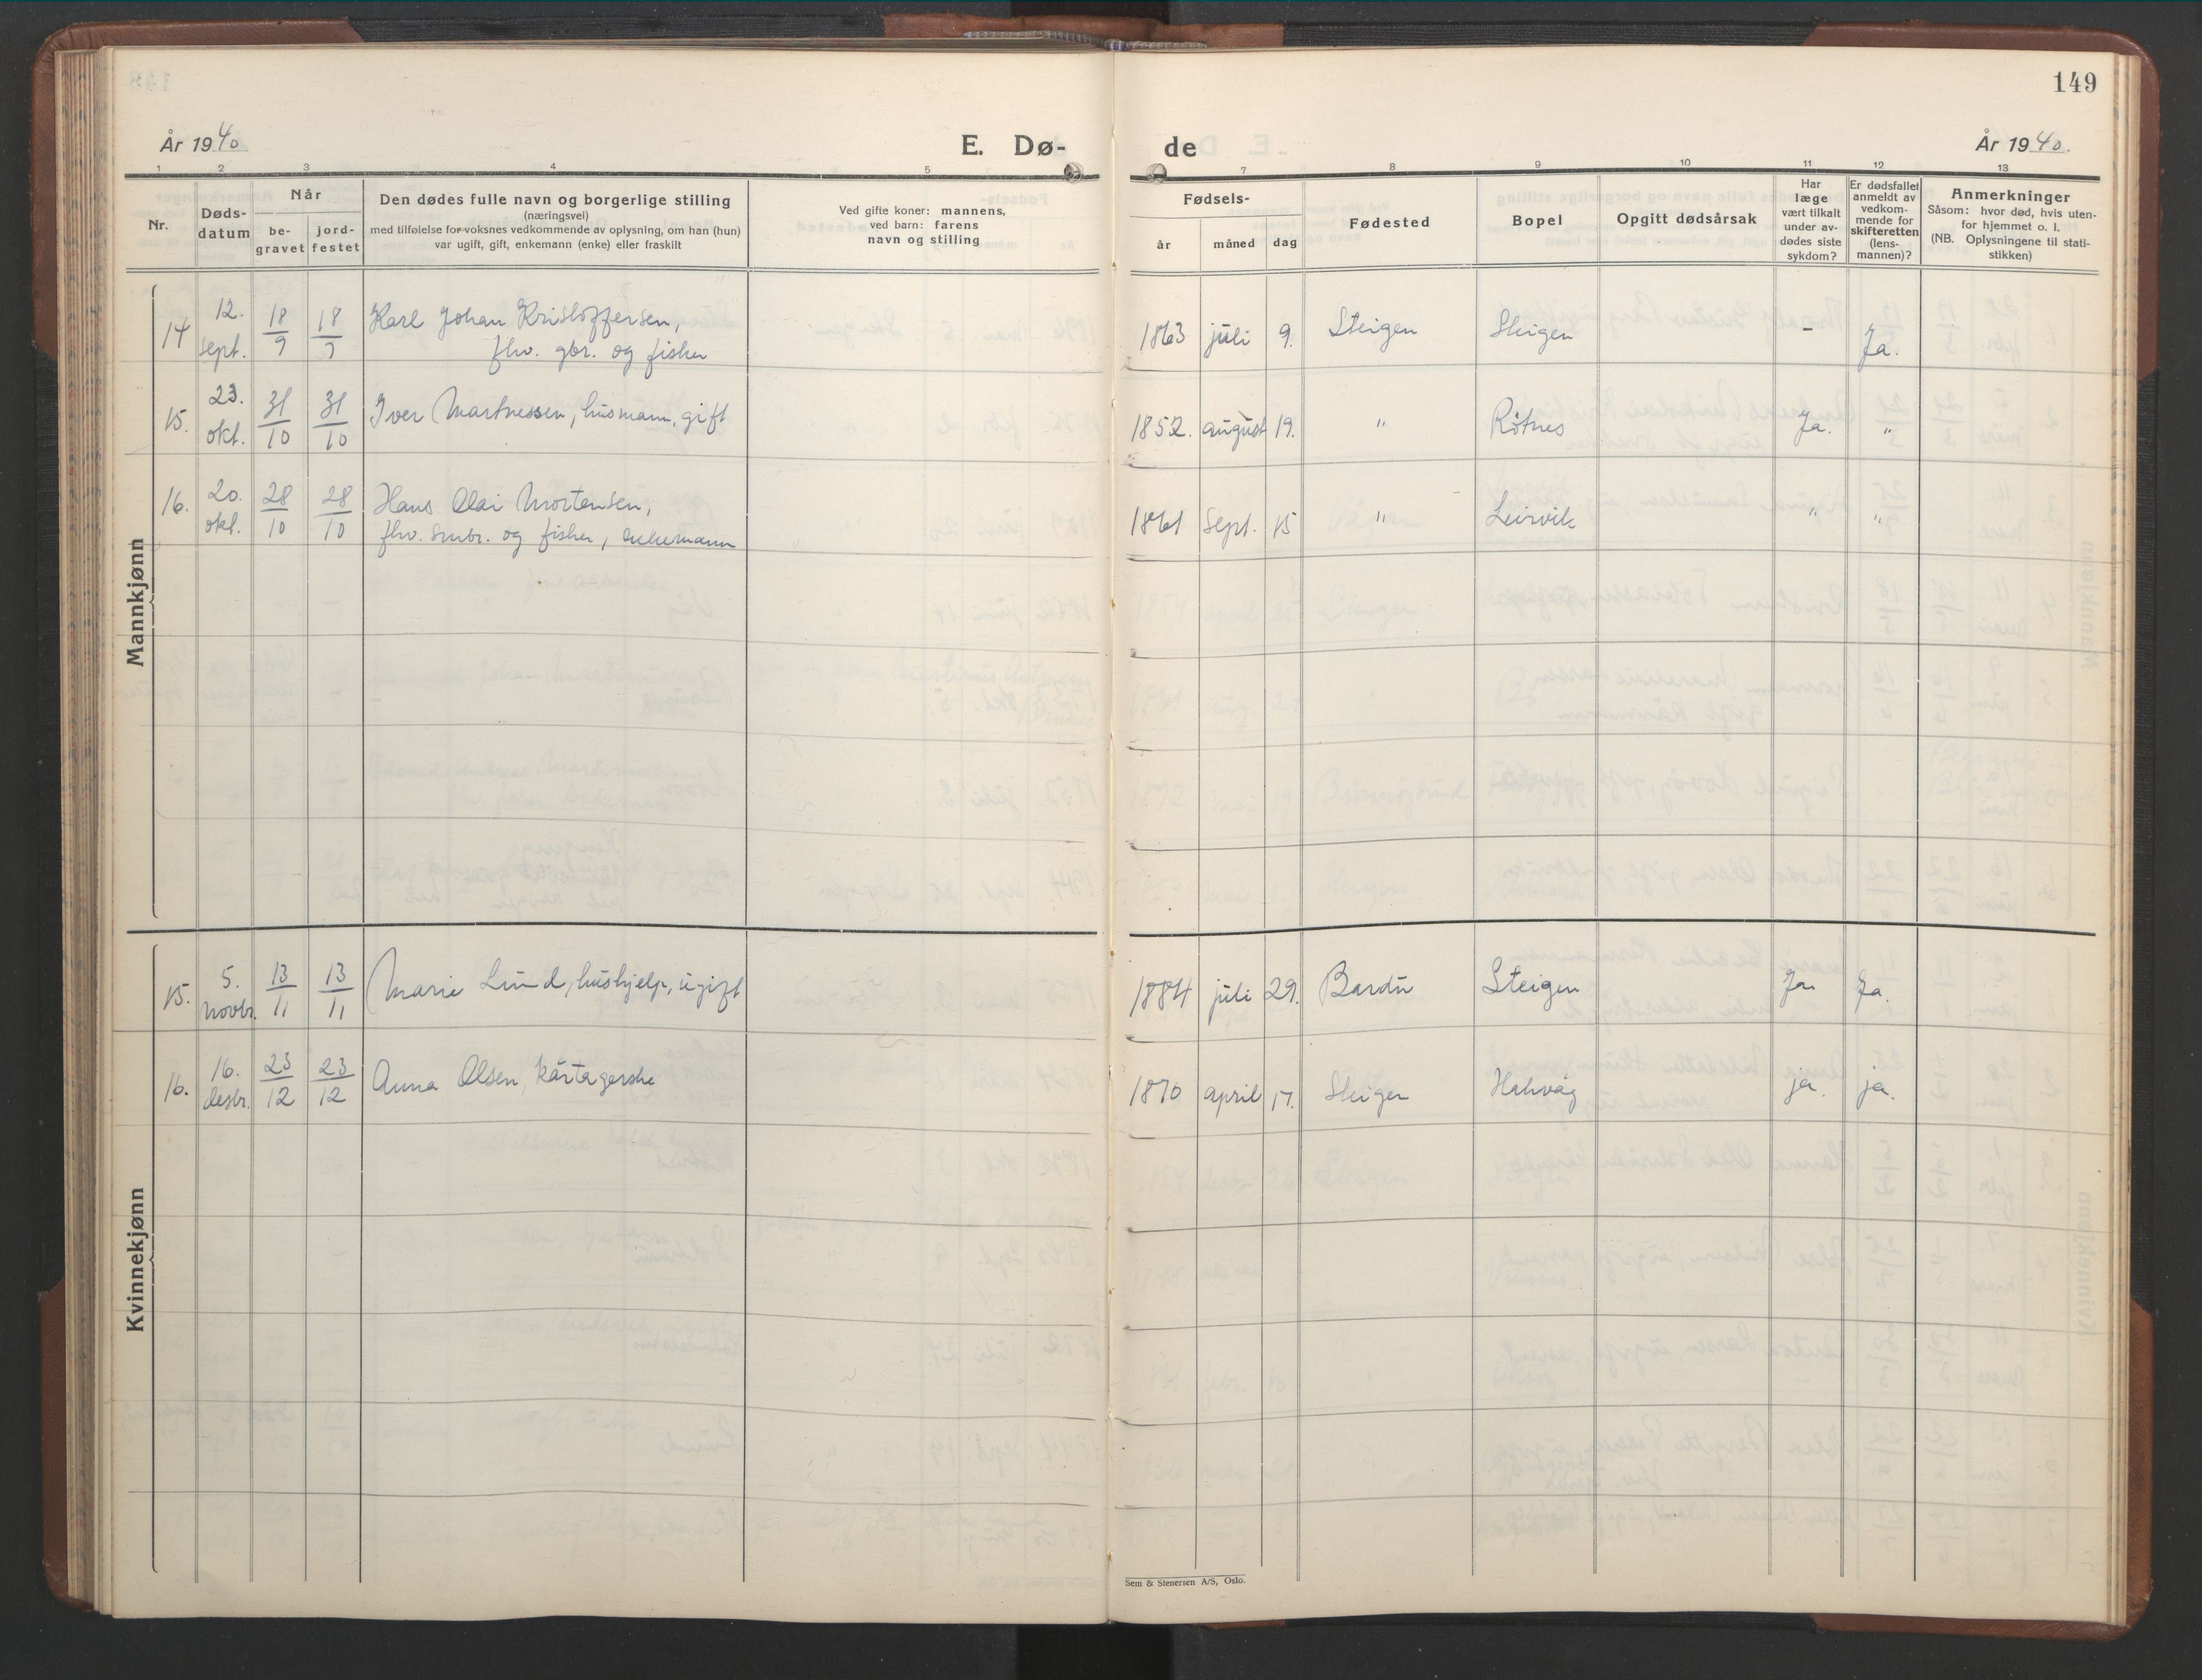 149
År 1940
E. Dø-
de
År 1940.
1 2 3 4 5 7 8 9 10 11 12 13
Nr.
Døds-
datum
Når
be-
gravet
jord-
festet
Den dødes fulle navn og borgerlige stilling
(næringsvei)
med tilføielse for voksnes vedkommende av oplysning, om han (hun)
var ugift, gift, enkemann (enke) eller fraskilt
Ved gifte koner: mannens,
ved barn: farens
navn og stilling
Fødsels-
år måned dag
Fødested
Bopel
Opgitt dødsårsak
Har
læge
vært tilkalt
under av-
dødes siste
sykdom?
Er dødsfallet
anmeldt av
vedkom-
mende for
skifteretten
(lens-
mannen)?
Anmerkninger
Såsom: hvor død, hvis uten-
for hjemmet o. l.
(NB. Oplysningene til stati-
stikken)
Mannkjønn
14 12. sept. 18/9 18/9 Karl Johan Kristoffersen, 1863 juli 9. Steigen Steigen - Ja.
fhv. gbr. og fisker
15. 23. okt. 31/10 31/10 Iver Martnessen, husmann, gift 1852. august 19. " Røtnes Ja. "
16. 20. okt. 28/10 28/10 Hans Olai Mortensen, 1861 sept. 15 " Leirvik " "
fhv. smbr. og fisker, enkemann
Kvinnekjønn
15. 5. novbr. 13/11 13/11 Marie Lund, hushjelp, ugift 1884 juli 29. Bardu Steigen Ja Ja.
16. 16. desbr. 23/12 23/12 Anna Olsen, kårtagerske 1870 april 17. Steigen Holvåg ja. ja.
Sem & Stenersen A/S, Oslo.